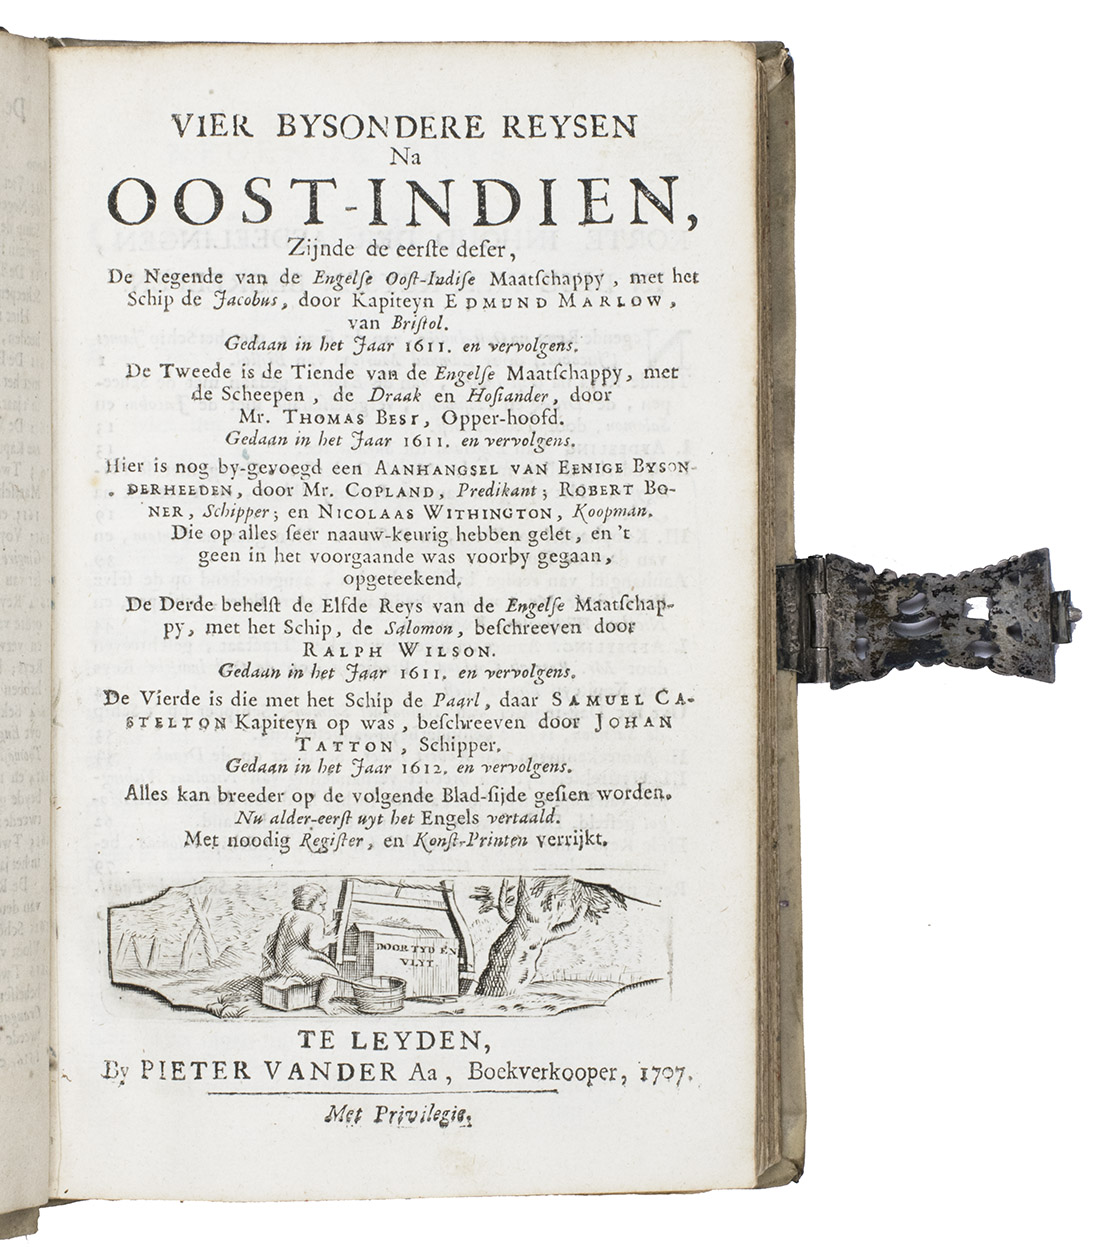 VIER BYSONDERE REYSEN
Na
OOST-INDIEN,
Zijnde de eerste deser,
De Negende van de Engelſe Ooſt-Indiſe Maatſchappy, met het
Schip de Jacobus, door Kapiteyn EDMUND MARLOW,
van Briſtol.
Gedaan in het Jaar 1611. en vervolgens.
De Tweede is de Tiende van de Engelſe Maatſchappy, met
de Scheepen, de Draak en Hoſiander, door
Mr. THOMAS BEST, Opper-hoofd.
Gedaan in het Jaar 1611. en vervolgens.
Hier is nog by-gevoegd een AANHANGSEL VAN EENIGE BYSON-
DERHEEDEN, door Mr. COPLAND, Predikant; ROBERT BO-
NER, Schipper; en NICOLAAS WITHINGTON, Koopman.
Die op alles ſeer naauw-keurig hebben gelet, en 't
geen in het voorgaande was voorby gegaan,
opgeteekend.
De Derde behelſt de Elfde Reys van de Engelſe Maatſchap-
py, met het Schip, de Salomon, beſchreeven door
RALPH WILSON.
Gedaan in het Jaar 1611. en vervolgens.
De Vierde is die met het Schip de Paarl, daar SAMUEL CA-
STELTON Kapiteyn op was, beſchreeven door JOHAN
TATTON, Schipper.
Gedaan in het Jaar 1612. en vervolgens.
Alles kan breeder op de volgende Blad-ſijde geſien worden.
Nu alder-eerſt uyt het Engels vertaald.
Met noodig Regiſter, en Konſt-Printen verrijkt.
DOOR TYD EN
VLYT.
TE LEYDEN,
By PIETER VANDER Aa, Boekverkooper, 1707.
Met Privilegie.